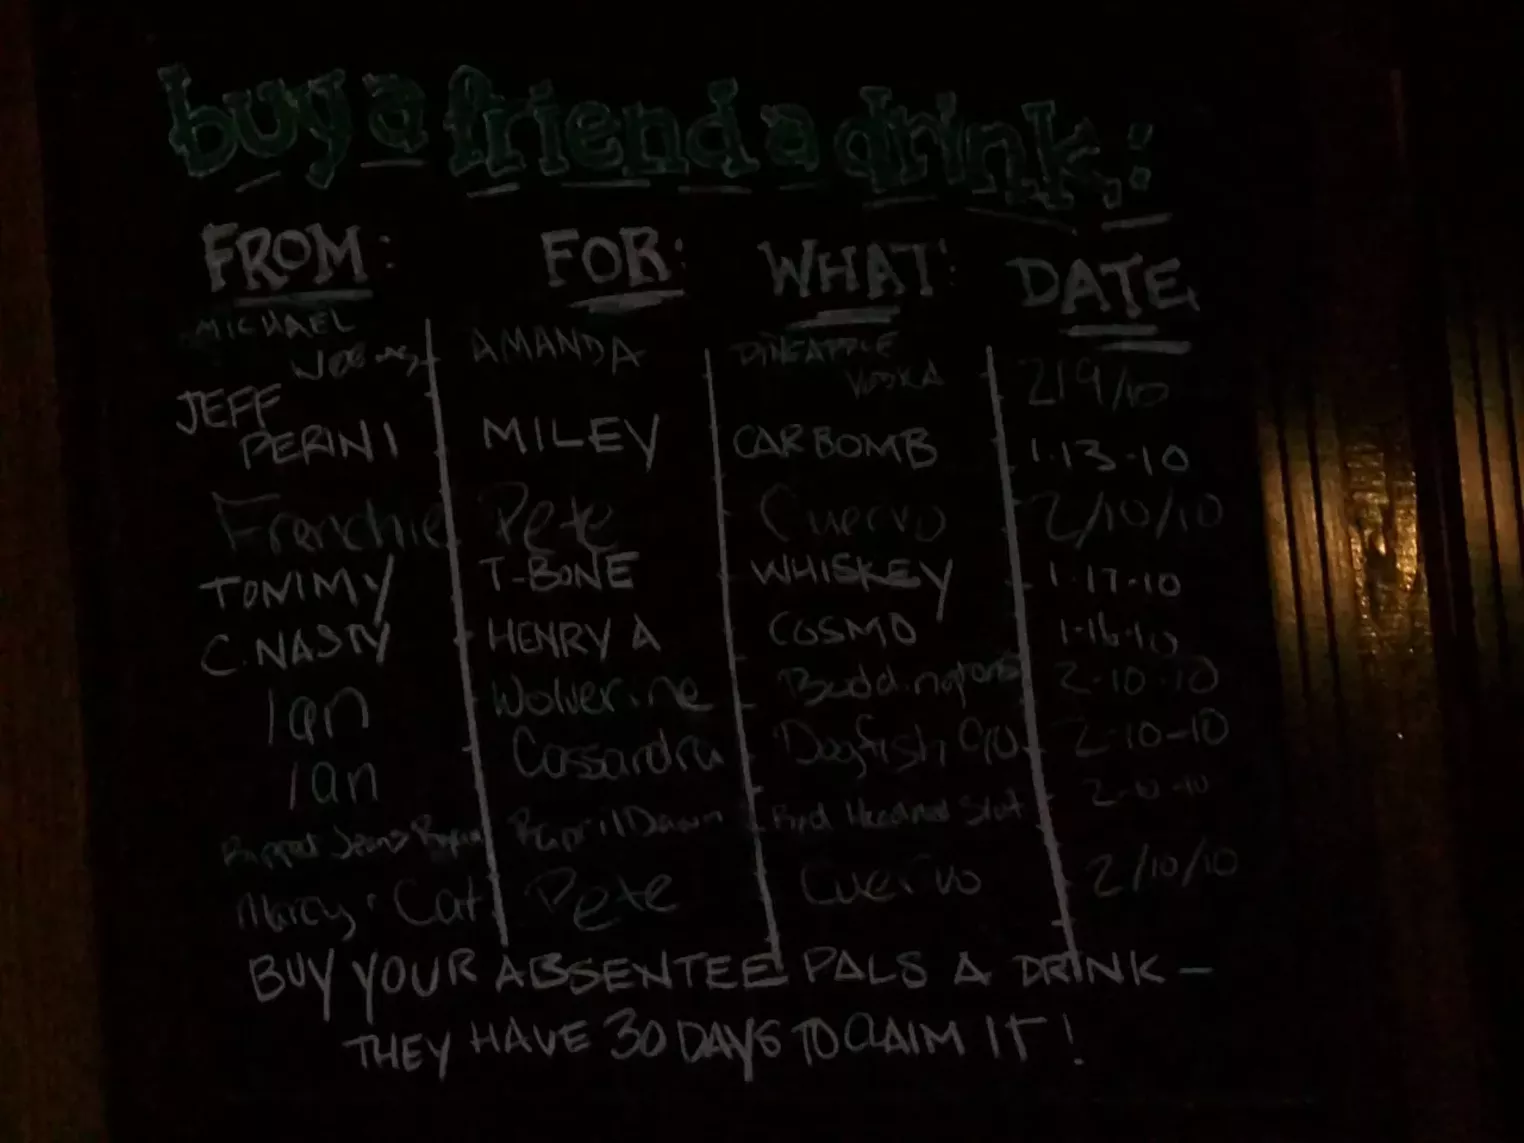 buy a friend a drink:
FROM: FOR: WHAT: DATE
MICHAEL AMANDA PINEAPPLE VODKA 2/9/10
JEFF PERINI MILEY CARBOMB 1·13·10
Franchie Pete Cuervo 2/10/10
TOMMY T-BONE WHISKEY 1·17·10
C. NASTY HENRY A COSMO 1·16·10
Ian Wolverine Boddingtons 2-10-10
Ian Cassandra Dogfish 90 2-10-10
April Dawn Red Headed Slut 2-10-10
Marcy + Cat Pete Cuervo 2/10/10
BUY YOUR ABSENTEE PALS A DRINK —
THEY HAVE 30 DAYS TO CLAIM IT!